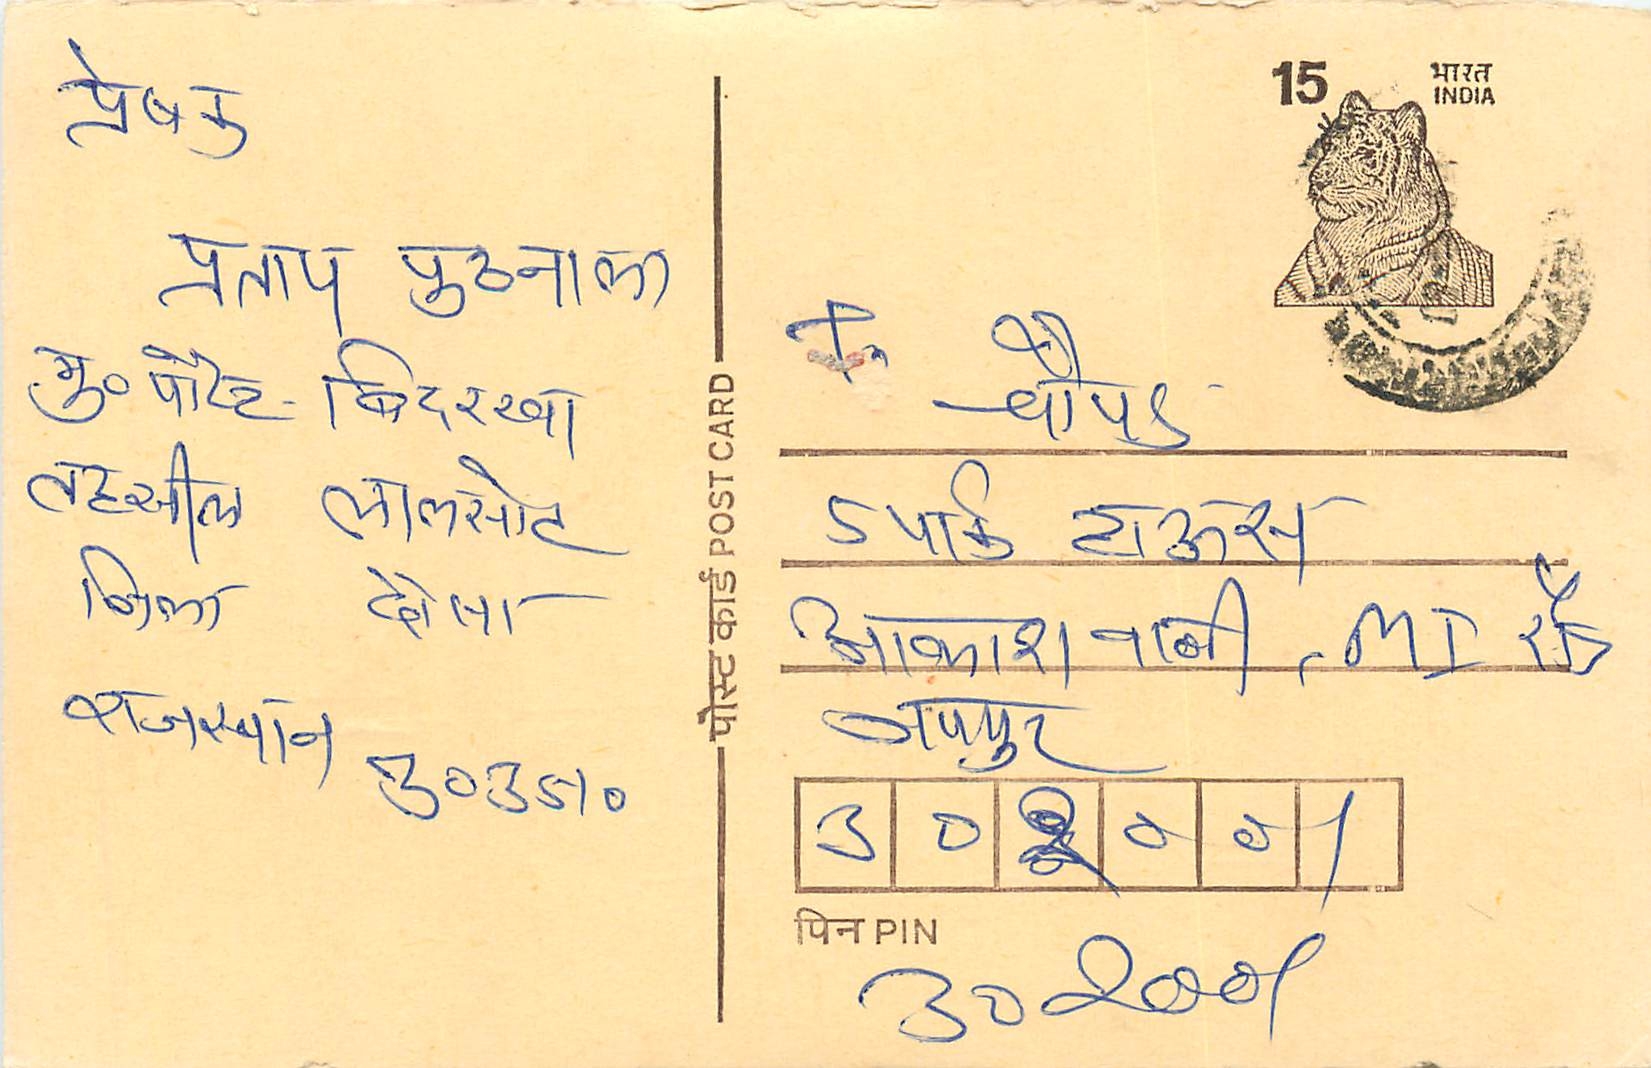 प्रेषक
प्रताप पुठनाला
मु० पोस्ट बिदरखा
तहसील लालसोट
जिला दौसा
राजस्थान
303510
पोस्ट कार्ड POST CARD
15 भारत
INDIA
चौपड
5 पार्क हाऊस
आकाशवाणी, MI रोड
जयपुर
302001
पिन PIN
302001